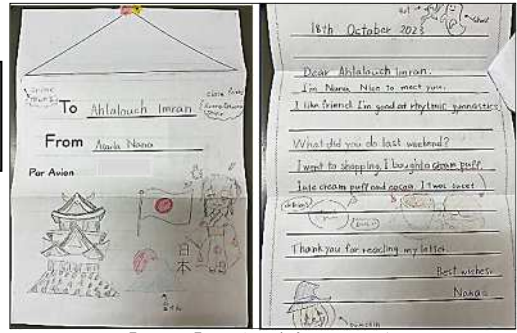 To Ahlalouch Imran
From Nana
Par Avion
日本
bat
ghost
18th October 2023
Dear Ahlalouch Imran.
I'm Nana. Nice to meet you.
I like friend. I'm good at rhythmic gymnastics
What did you do last weekend?
I went to shopping, I bought a cream puff
I ate cream puff and cocoa, I twas sweet
Thank you for reading my letter.
Best wishes.
Nana
pumpkin